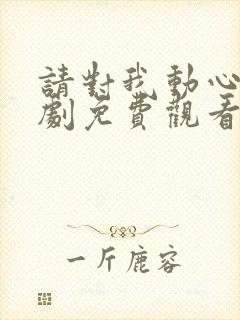 請對我動心
劇免費觀看
一斤鹿容